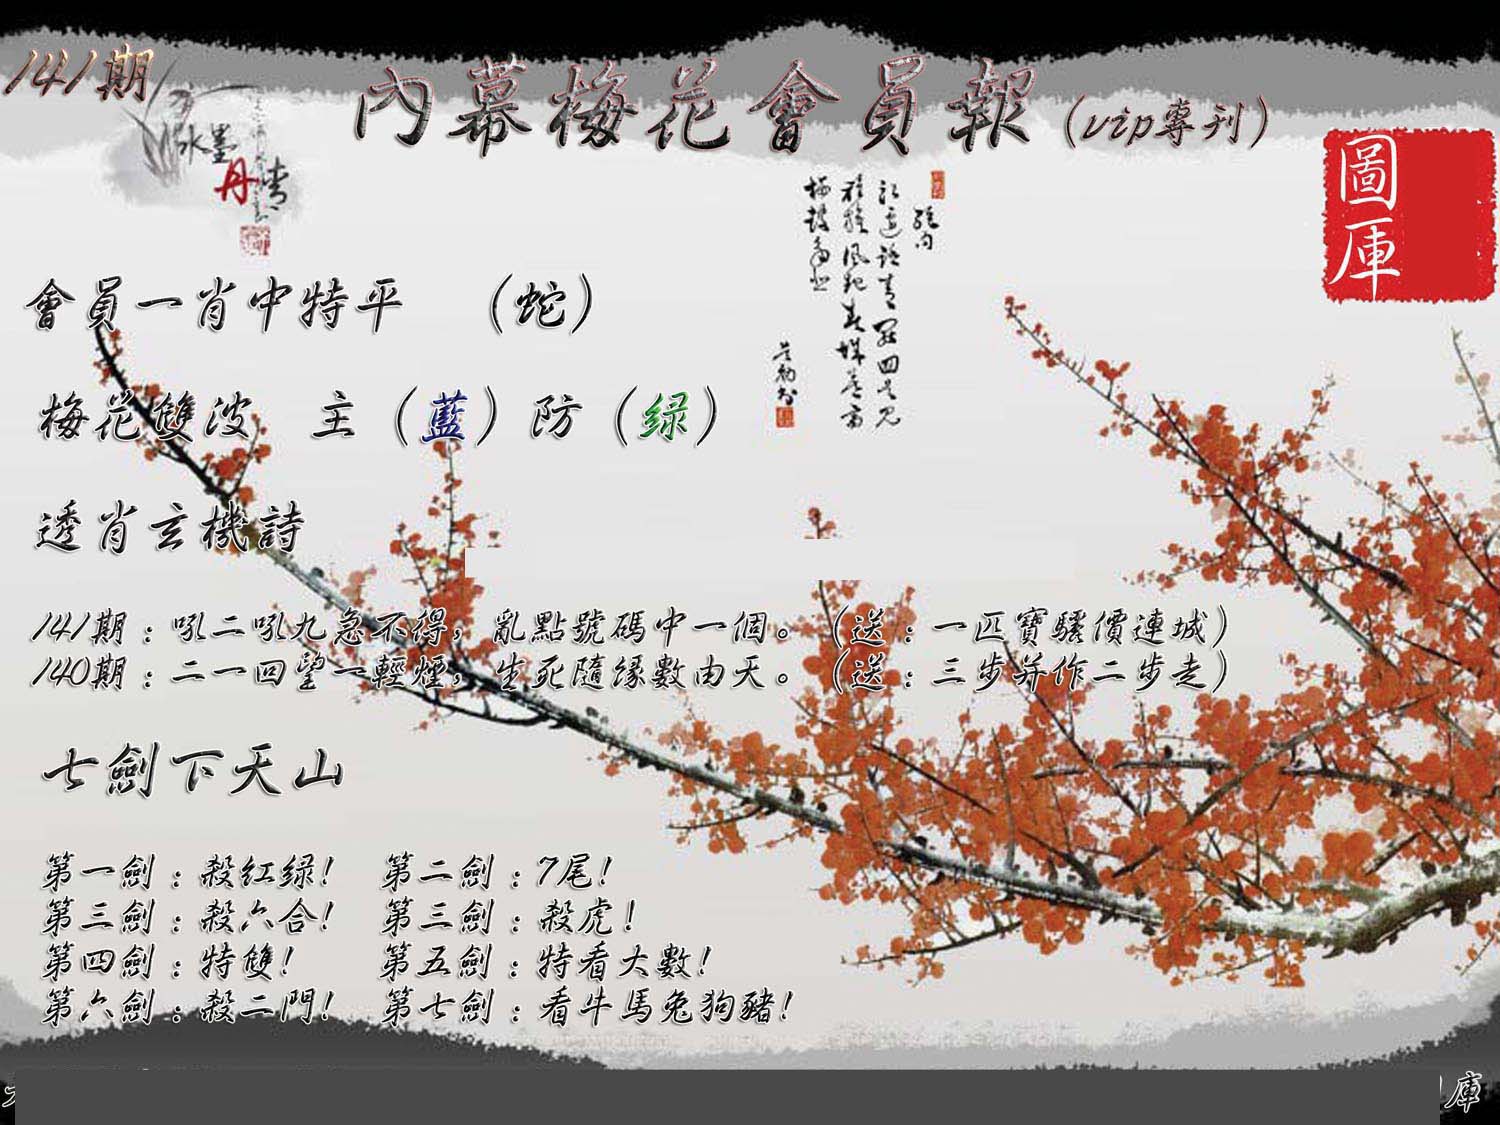 141期
內幕梅花會員報（vip專刊）
水墨
丹青
圖
庫
會員一肖中特平　（蛇）
梅花雙波　主（藍）防（绿）
透肖玄機詩
141期：吼二吼九急不得，亂點號碼中一個。（送：一匹寶騾價連城）
140期：二一回望一輕煙，生死隨缘數由天。（送：三步并作二步走）
七劍下天山
第一劍：殺紅绿！　第二劍：7尾！
第三劍：殺六合！　第三劍：殺虎！
第四劍：特雙！　第五劍：特看大數！
第六劍：殺二門！　第七劍：看牛馬兔狗豬！
庫